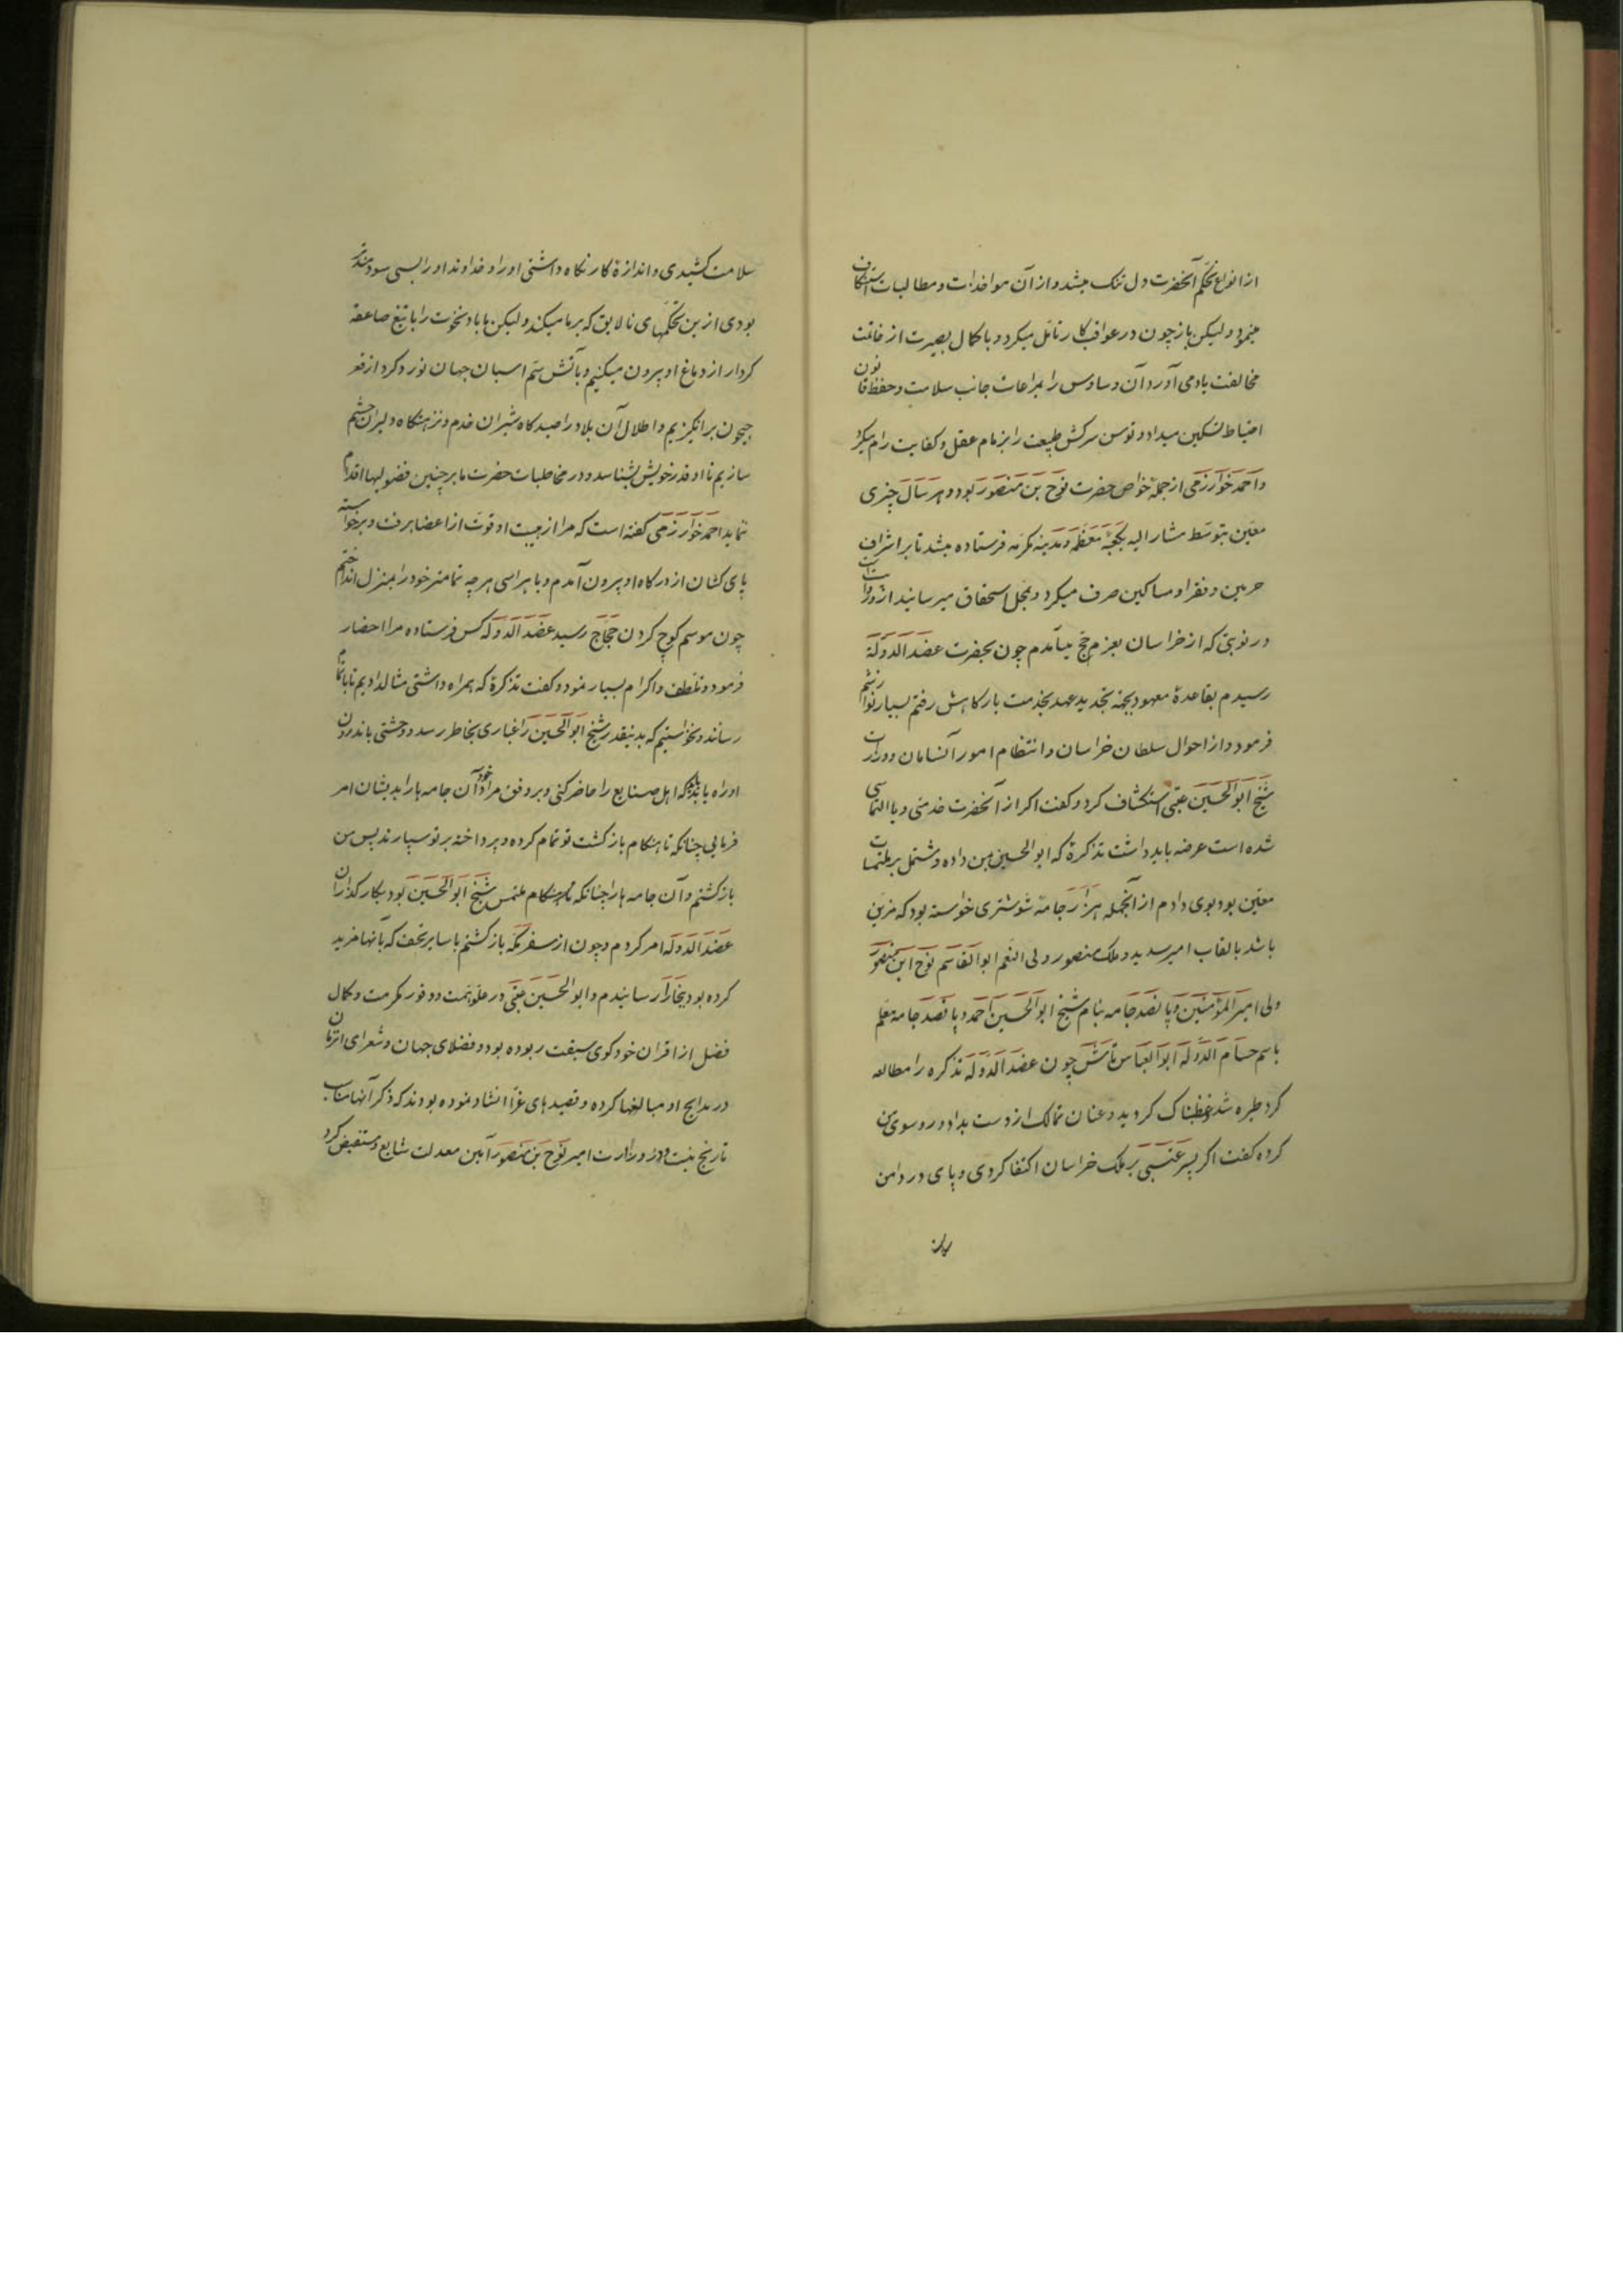 از انواع تحکم آنحضرت دل تنک میشد و از آن مواخذات و مطالبات استنکاف
مینمود و لیکن باز چون در عواقب کار تامل میکرد و با کمال بصیرت از خاتمت
مخالفت یاد می آورد آن وساوس را بمراعات جانب سلامت و حفظ قانون
احتیاط تسکین میداد و توسن سرکش طبیعت را بزمام عقل و کفایت رام میکرد
و احمد خوارزمی از جملهٔ خواص حضرت نوح بن منصور بود و هر سال چیزی
معین بتوسط مشار الیه بکعبهٔ معظمه و مدینه مکرمه فرستاده میشد تا بر اشراف
حرمین و فقرا و مساکین صرف میکرد و بمحل استحقاق میرسانید از
در نوبتی که از خراسان بعزم حج میآمدم چون بحضرت عضد الدولة
رسیدم بقاعدهٔ معهود بجهة تجدید عهد بخدمت بارکاهش رفتم بسیار نوازشم
فرمود و از احوال سلطان خراسان و انتظام امور آنسامان و وزارت
شیخ ابو الحسین عتبی استکشاف کرد و کفت اکر از آنحضرت خدمتی و یا التماسی
شده است عرضه باید داشت تذکرهٔ که ابو الحسین بمن داده و مشتمل بر ملتمسات
معین بود بوی دادم از آنجمله هزار جامهٔ شوشتری خواسته بود که مزین
باشد بالقاب امیر سدید و ملک منصور ولی النعم ابو القاسم نوح ابن منصور
ولی امیر المؤمنین و پانصد جامه بنام شیخ ابو الحسین احمد و پانصد جامه معلم
باسم حسام الدوله ابو العباس تاش چون عضد الدوله تذکره را مطالعه
کرد طیره شد و غظبناک کردید و عنان تمالک از دست بداد و رو سوی من
کرده کفت اکر پسر عتبی بر ملک خراسان اکتفا کردی و پای در دامن
سلامت کشیدی و اندازهٔ کار نکاه داشتی او را و خداوند او را بسی سودمندتر
بودی ازین تحکمهای نالایق که بر ما میکند و لیکن ما باد نخوت را با تیغ صاعقه
کردار از دماغ او بیرون میکنیم و بآتش سم اسبان جهان نورد کرد از قعر
جیحون برانکیزیم و اطلال آن بلاد را صیدکاه شیران خدم و نزهتکاه دلیران حشم
سازیم تا او قدر خویش بشناسد و در مخاطبات حضرت ما بر چنین فضولیها اقدام
ننماید احمد خوارزمی کفته است که مرا از هیبت او قوت از اعضا برفت و برخواسته
پای کشان از درکاه او بیرون آمدم و با هراسی هر چه تمامتر خود را بمنزل انداختم
چون موسم کوچ کردن حجاج رسید عضد الدوله کس فرستاده مرا احضار
فرمود و تلطف و اکرام بسیار نمود و کفت تذکرهٔ که همراه داشتی مثال دادیم تا باتمام
رساند و نخواستیم که بدینقدر شیخ ابو الحسین را غباری بخاطر رسد و وحشتی باندرون
او راه یابد باید که اهل صنایع را حاضر کنی و بر وفق مراد خود آن جامه ها را بدیشان امر
فرمایی چنانکه تا هنکام بازکشت تو تمام کرده و پرداخته بر تو سپارند پس من
بازکشتم و آن جامه ها را چنانکه ملتمس شیخ ابو الحسین بود بکارکذاران
عضد الدوله امر کردم و چون از سفر مکه بازکشتم با سایر تحف که بآنها مزید
کرده بود ببخارا رسانیدم و ابو الحسین عتبی در علو همت و وفور مکرمت و کمال
فضل از اقران خود کوی سبقت ربوده بود و فضلای جهان و شعرای آنزمان
در مدایح او مبالغها کرده و قصیدهای غرا انشاد نموده بودند که ذکر آنها مناسب
تاریخ نیست و در وزارت امیر نوح بن منصور آیین معدلت شایع و مستفیض کرد